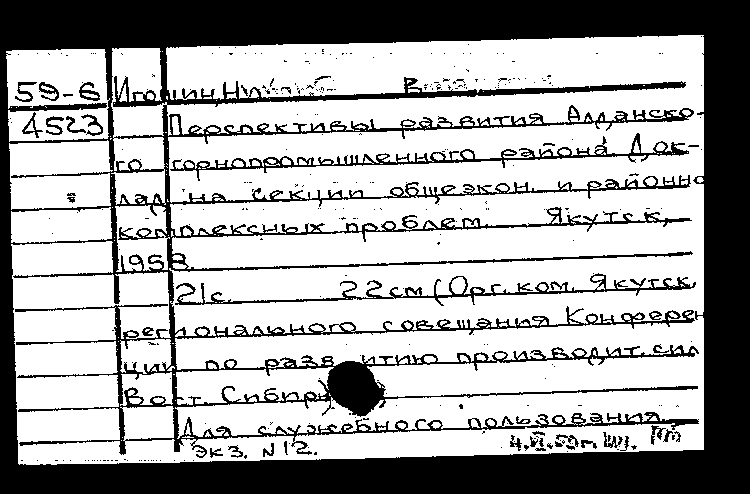 59-6 Игошин, Н
4523 Перспективы развития Алданско-
го горнопромышленного района. Док-
лад на секции общеэкон. и районно
комплексных проблем. Якутск,
1958.
21с. 22см (Орг. ком. Якутск.
регионального совещания Конферен
ции по развитию производит. сил
Вост. Сибири)
Для служебного пользования.
Экз. N 12.